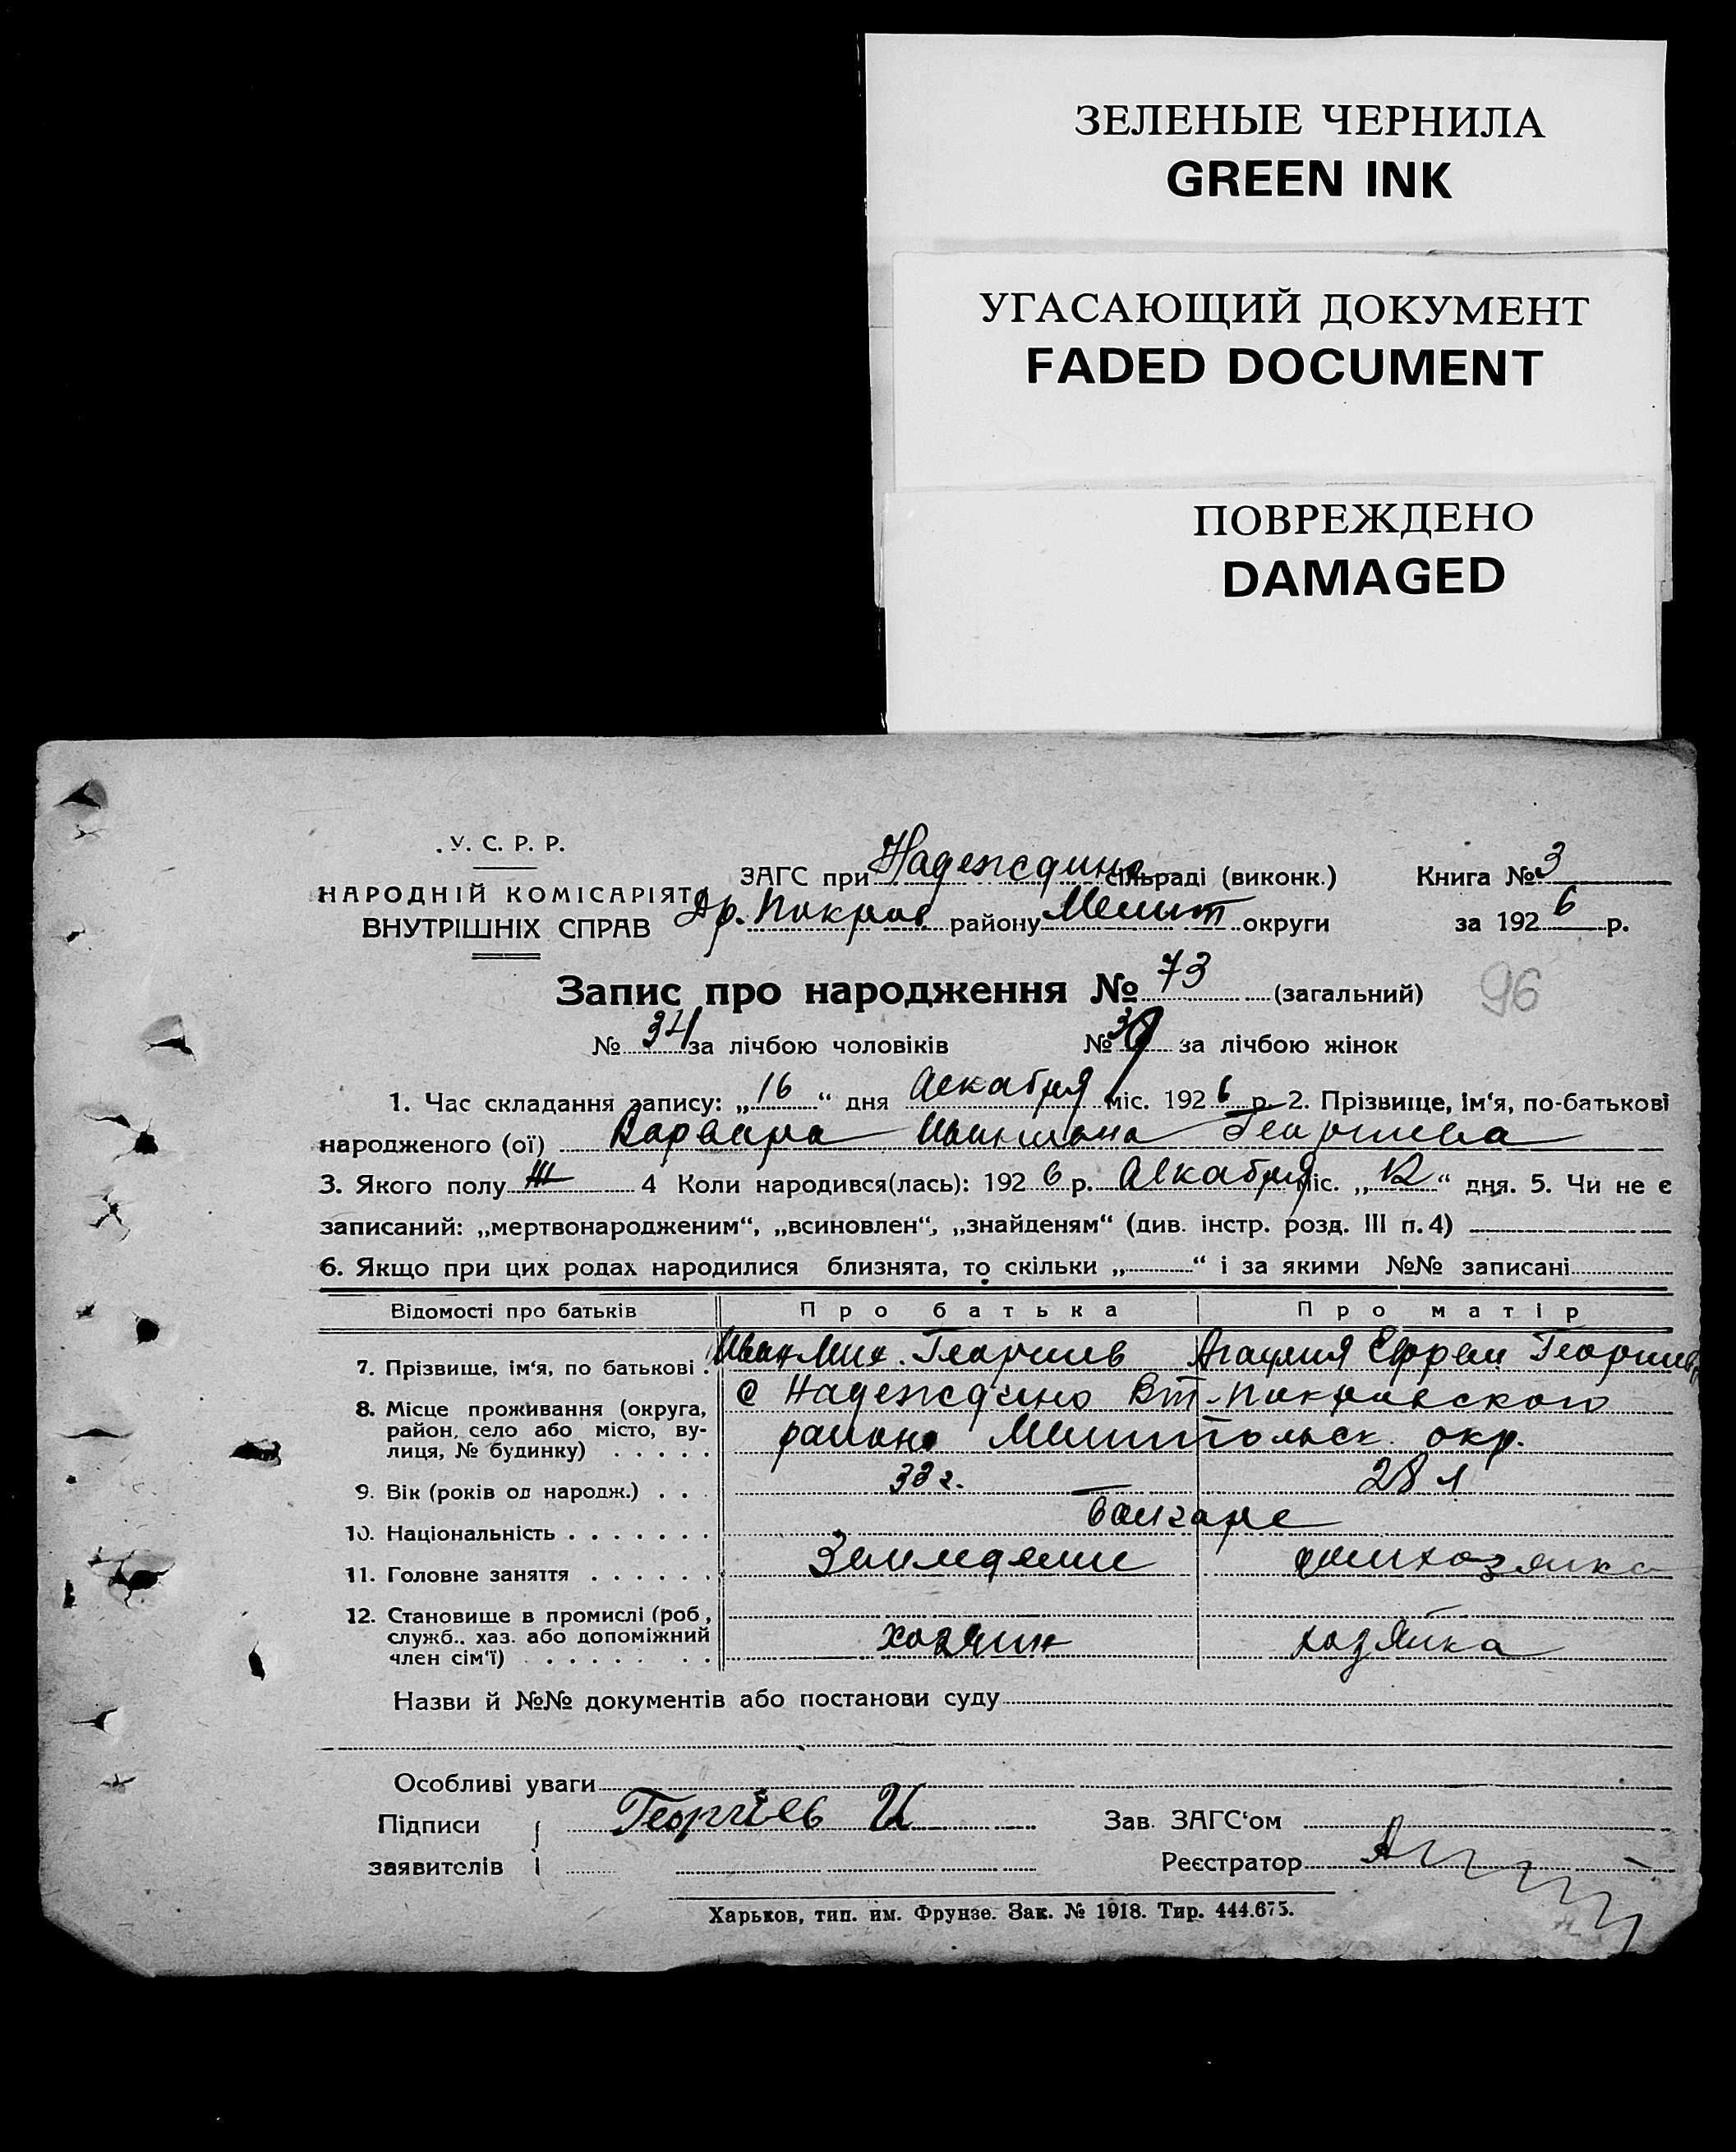 ЗЕЛЕНЫЕ ЧЕРНИЛА
GREEN INK
УГАСАЮЩИЙ ДОКУМЕНТ
FADED DOCUMENT
ПОВРЕЖДЕНО
DAMAGED
У. С. Р. Р.
НАРОДНІЙ КОМІСАРІЯТ
ВНУТРІШНІХ СПРАВ
ЗАГС при Надеждино сільраді (виконк.) Книга № 3
Покров району Мелит округи за 1926 р.
Запис про народження № 73 (загальний)
96
№ 34 за лічбою чоловіків № 39 за лічбою жінок
1. Час складання запису: „16“ дня декабря міс. 1926 р. 2. Прізвище, ім‘я, по-батькові
народженого (ої) Варвара Ивановна Георгиева
3. Якого полу Ж 4 Коли народився(лась): 1926 р. декабря міс. „12“ дня. 5. Чи не є
записаний: „мертвонародженим“, „всиновлен“, „знайденям“ (див. інстр. розд. III п. 4)
6. Якщо при цих родах народилися близнята, то скільки „ “ і за якими №№ записані
Відомості про батьків Про батька Про матір
7. Прізвище, ім‘я, по батькові . Иван Мих. Георгиев Ефрем Георгиева
8. Місце проживання (округа, район, село або місто, вулиця, № будинку) . . . . . с Надеждино Вт-Покровского
района Мелитопольск. окр.
9. Вік (років од народж.) . . . 33 г. 28 л
10. Національність . . . . . . . болгаре
11. Головне заняття . . . . . . Земледелие домхозяйка
12. Становище в промислі (роб., служб., хаз. або допоміжний член сім‘ї) . . . . . . . . хозяин хозяйка
Назви й №№ документів або постанови суду
Особливі уваги
Підписи Георгіев И Зав. ЗАГС‘ом
заявителів Реєстратор
Харьков, тип. им. Фрунзе. Зак. № 1918. Тир. 444.675.